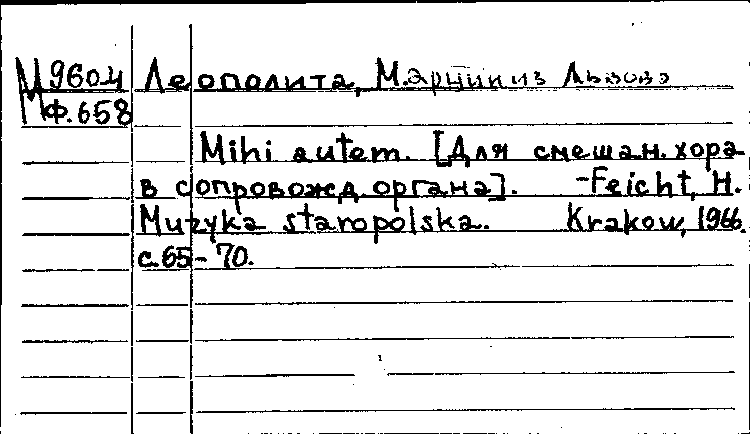 М 9604 Леополита, Марцин из Львова
МФ.658
Mihi autem. [Для смешан. хора
в сопровожд. органа]. - Feicht, H.
Muzyka staropolska. Krakow, 1966.
с.65-70.